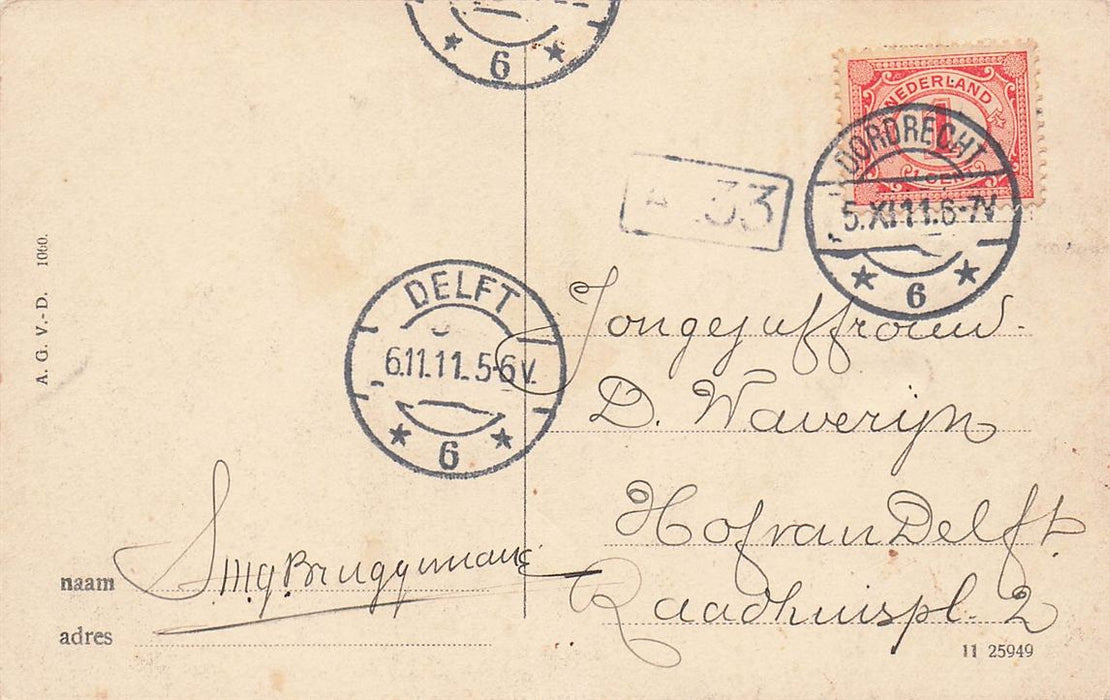 6
NEDERLAND
1
DORDRECHT
5.XI.11.6-7V
6
33
A. G. V.-D. 1060.
DELFT
6.11.11.5-6V.
6
Jongejuffrouw
D. Waverijn
Hof van Delft
Raadhuispl. 2
naam
adres
11 25949